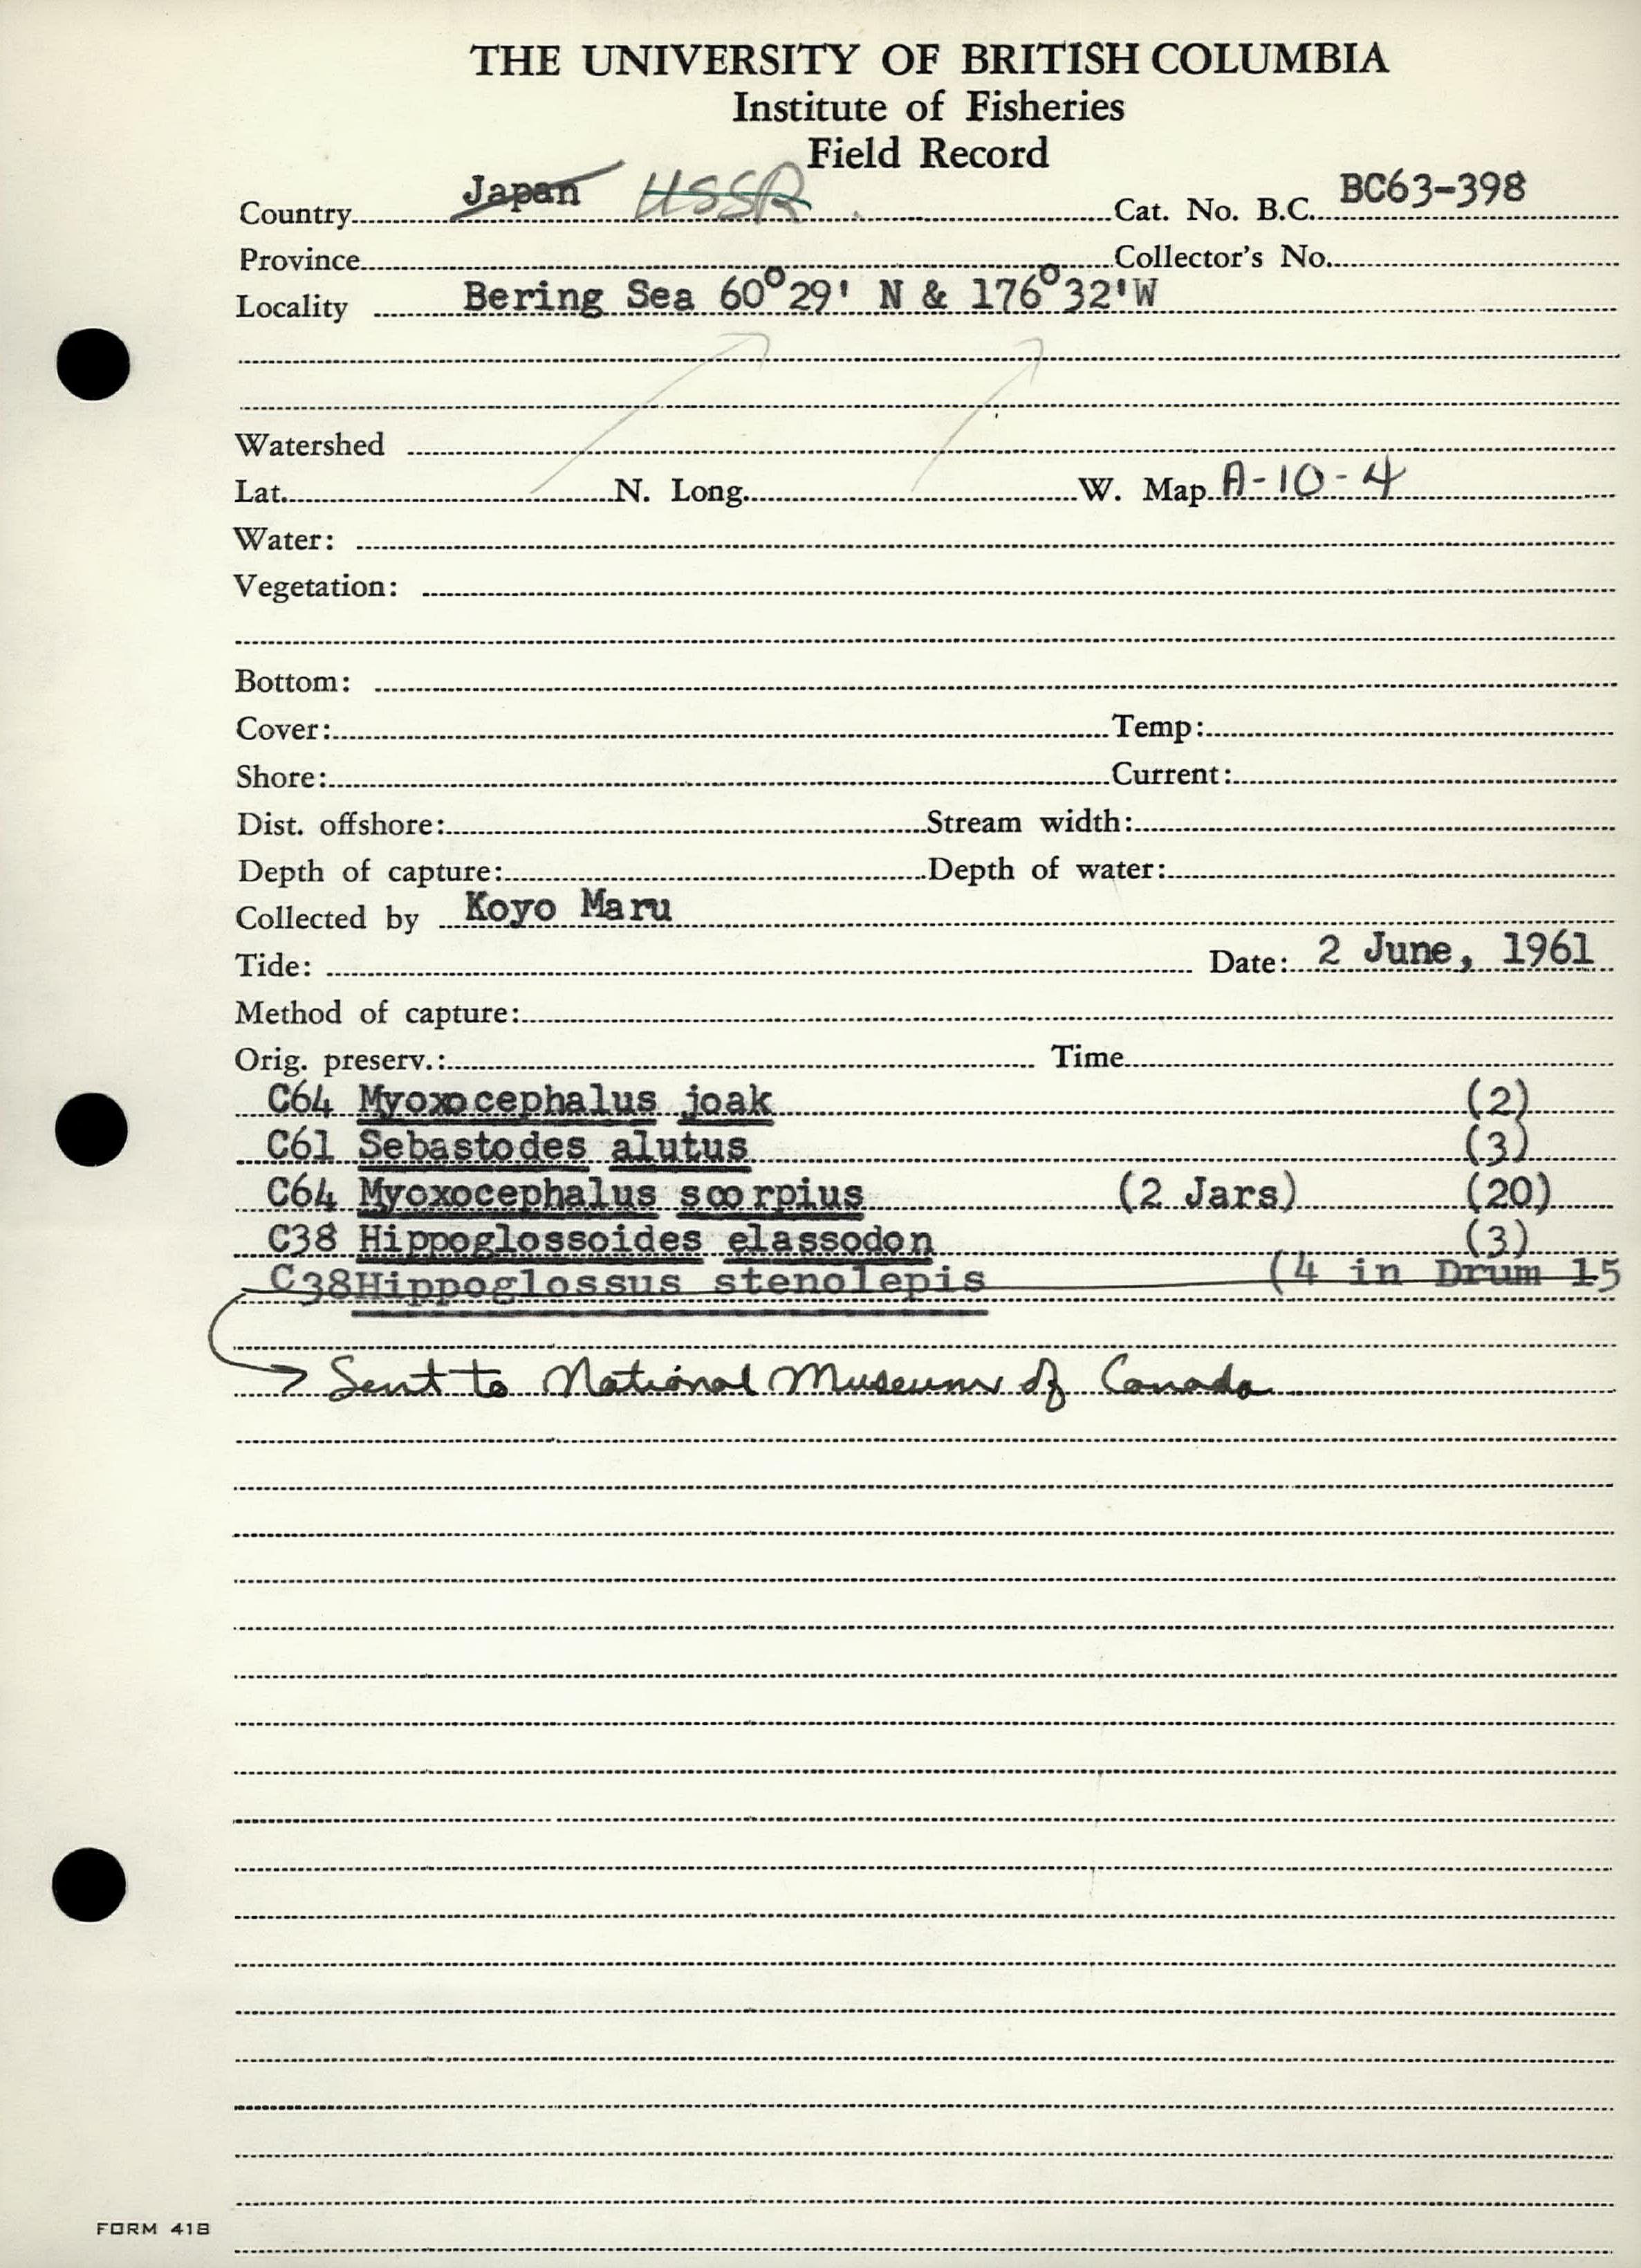 THE UNIVERSITY OF BRITISH COLUMBIA
Institute of Fisheries
Field Record
Country Japan USSR Cat. No. B.C. BC63-398
Province Collector's No.
Locality Bering Sea 60°29' N & 176°32'W
Watershed
Lat. N. Long. W. Map A-10-4
Water:
Vegetation:
Bottom:
Cover: Temp:
Shore: Current:
Dist. offshore: Stream width:
Depth of capture: Depth of water:
Collected by Koyo Maru
Tide: Date: 2 June, 1961
Method of capture:
Orig. preserv.: Time
C64 Myoxocephalus joak (2)
C61 Sebastodes alutus (3)
C64 Myoxocephalus scorpius (2 Jars) (20)
C38 Hippoglossoides elassodon (3)
C38Hippoglossus stenolepis (4 in Drum 15
Sent to National Museum of Canada
FORM 418